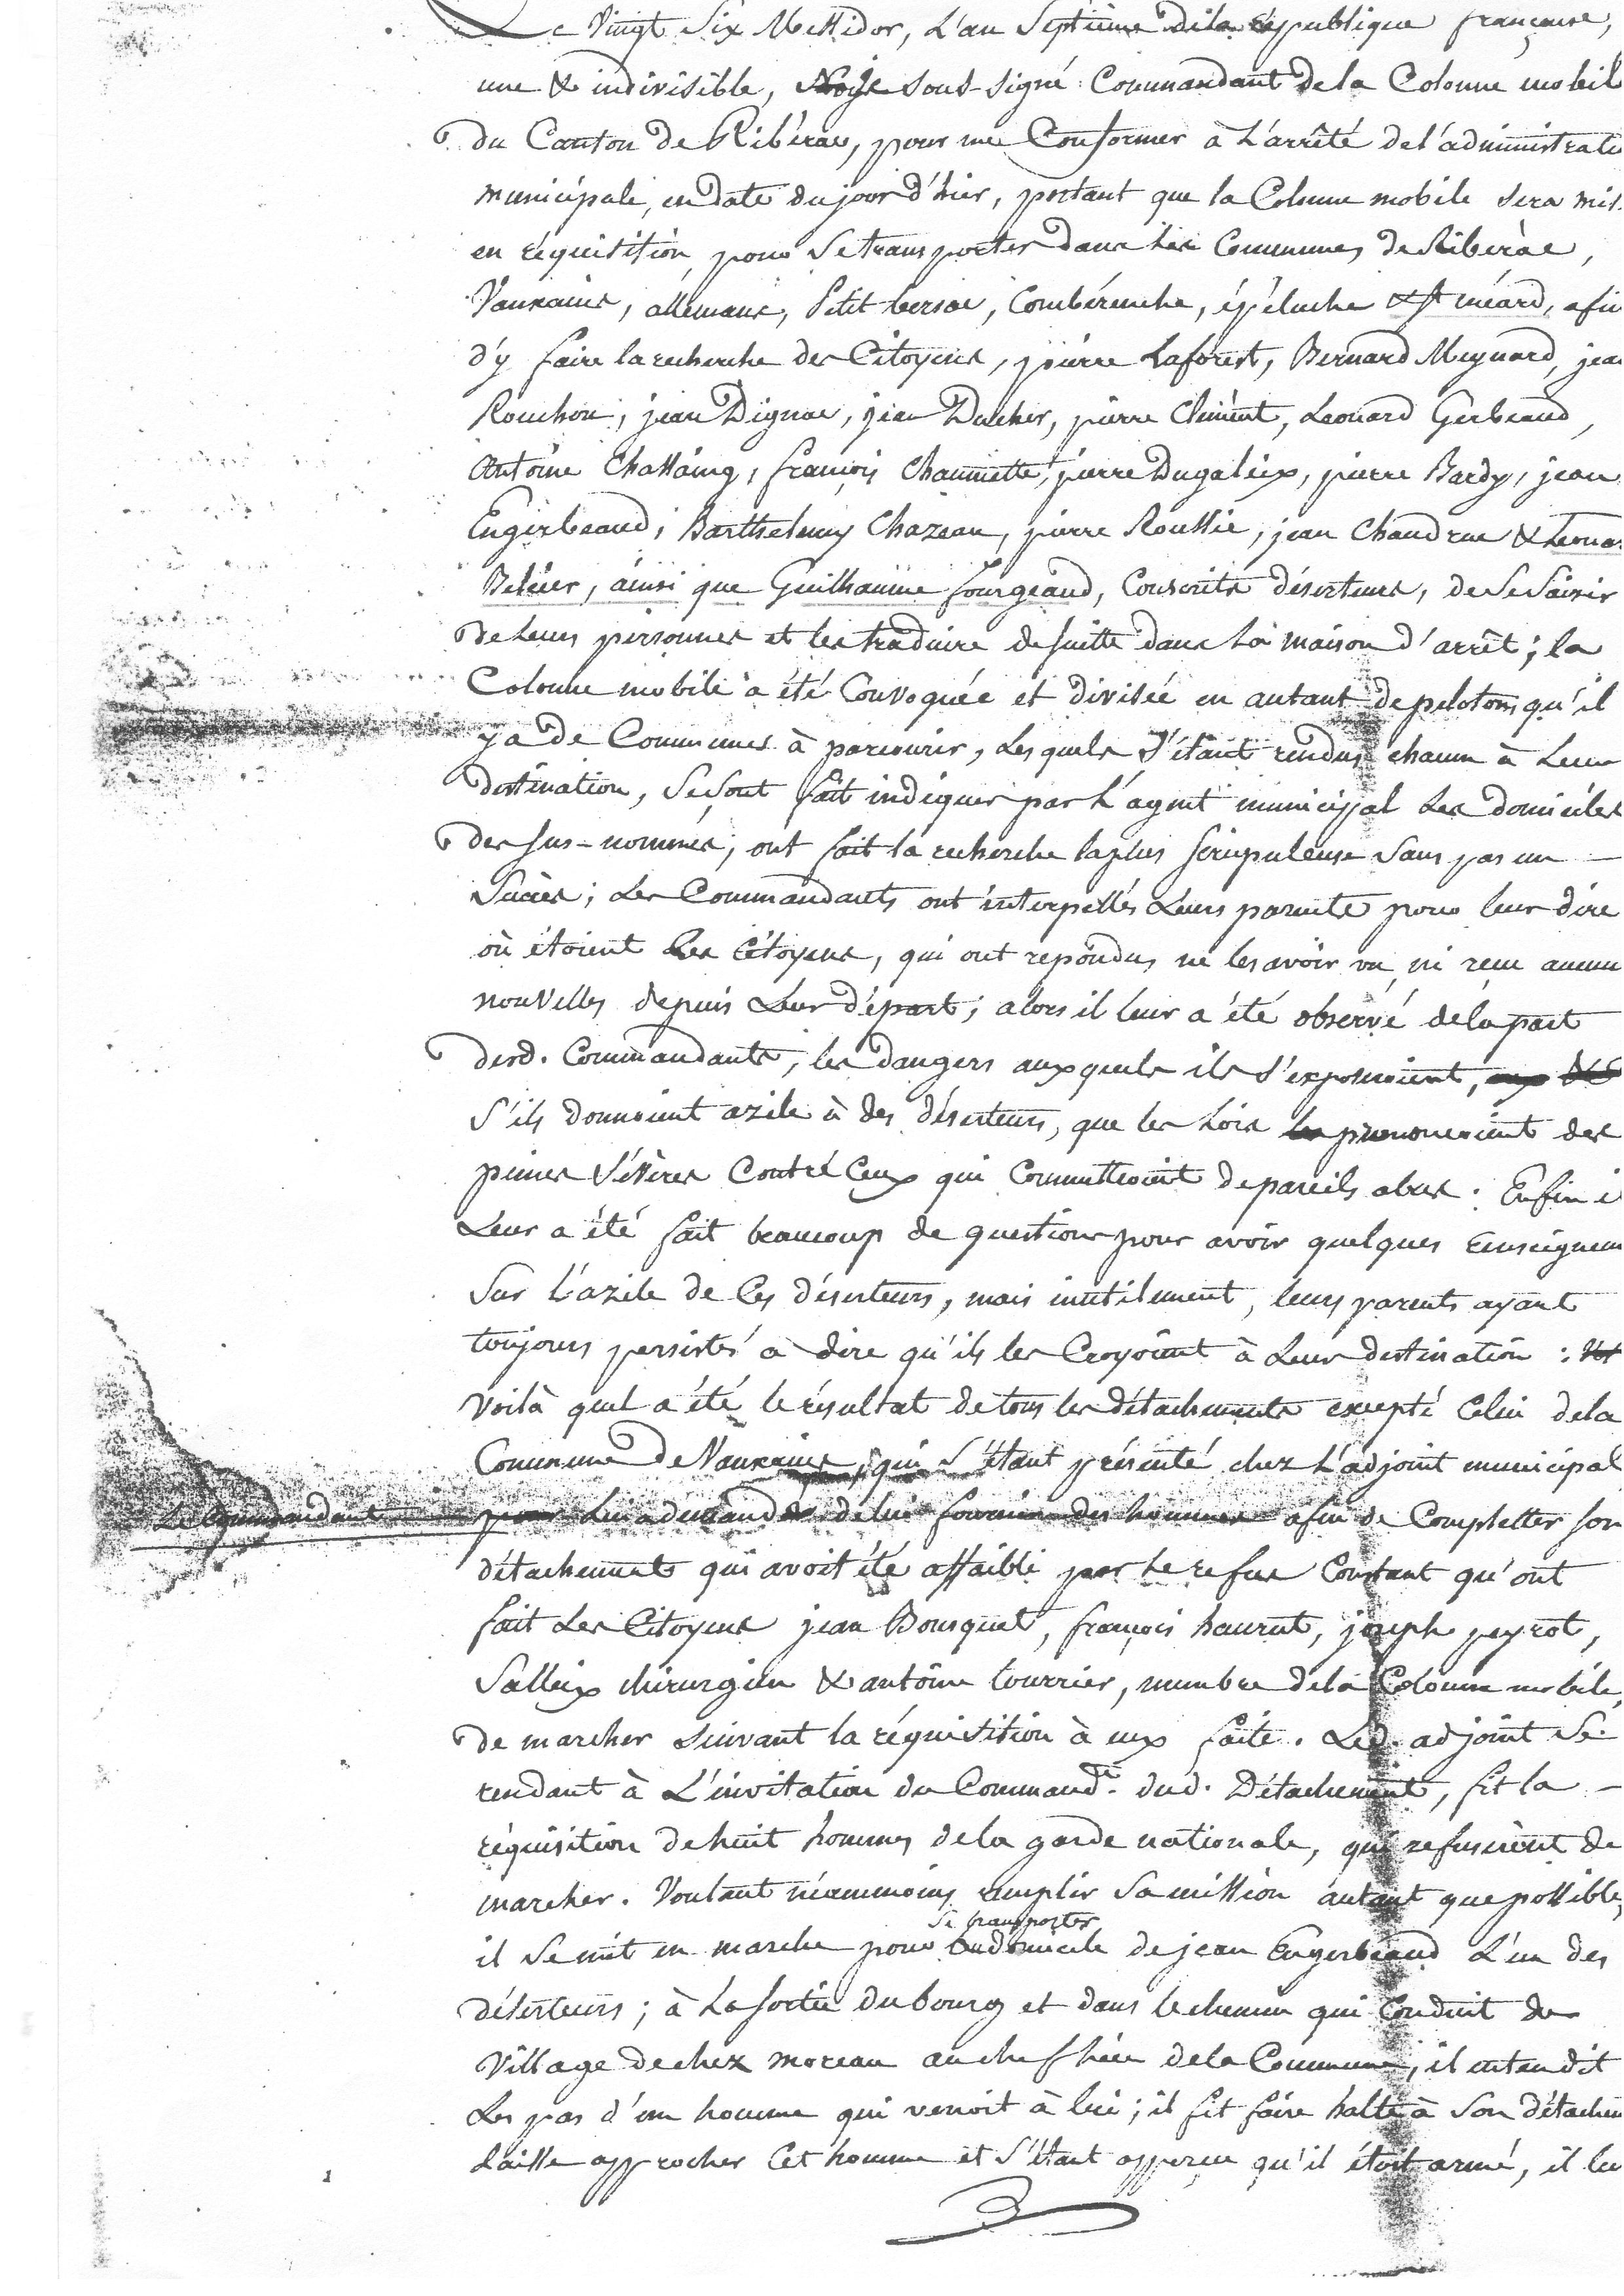 Le Vingt Six Messidor, L'an Septième de la République française,
une & indivisible, Nous sous-signé Commandant de la Colonne mobile
du Canton de Ribérac, pour me Conformer à L'arrêté de l'administrati
municipale, en date du jour d'hier, portant que la Colonne mobile sera mis
en réquisition, pour se transporter dans les Communes de Ribérac,
Vanxains, allemans, Petit bersac, Comberanche, épeluche & St méard, afin
d'y faire la recherche des Citoyens, pierre Laforest, Bernard Meynard, jean
Rouchon, jean Dignac, jean Ducher, pierre Clément, Léonard Gerbeaud,
Antoine Chassaing, françois Chaumette, pierre Dugaleix, pierre Bardy, jean
Engerbeaud, Barthelemy Chazeau, pierre Roussie, jean Chandrue & Léona
Belêier, ainsi que Guilhaume fourgeaud, Conscrits déserteurs, de se Saisir
de leurs personnes et les traduire de suitte dans la maison d'arrêt; la
Colonne mobile a été Convoquée et divisée en autant de pelotons qu'il
y a de Communes à parcourir, Lesquels s'étant rendus chacun à Leur
destination, se sont fait indiquer par L'agent municipal Les domiciles
des sus-nommés, ont fait la recherche la plus scrupuleuse sans pas un
Succès; Les Commandants ont interpellés Leurs parents pour leur dire
où étoient Les Citoyens, qui ont repondus ne les avoir vu, ni reçu aucun
nouvelles depuis Leur départ; alors il leur a été observé de la part
desd. Commandants, les dangers auxquels ils s'exposeroient,
S'ils donnoient azile à des déserteurs, que les Loix prononcoient des
peines sévères Contre Ceux qui Commettroient de pareils abus. Enfin i
Leur a été fait beaucoup de questions pour avoir quelques renseignem
Sur l'azile de Ces déserteurs, mais inutilement, leurs parents ayant
toujours persistés à dire qu'ils les Croyoient à Leur destination :
Voilà quel a été le résultat de tous les détachements excepté Celui de la
Commune de Vanxains, qui s'étant présenté chez L'adjoint municipal
Le Commandant
Lui a demandé de lui fournir des hommes afin de Completter son
détachements qui avoit été affaibli par Le refus Constant qu'ont
fait Les Citoyens jean Bousquet, françois haurut, joseph peyrot,
Salleix chirurgien & antoine tourrier, membre de la Colonne mobile,
de marcher suivant la réquisition à eux faite. Led. adjoint se
rendant à L'invitation du Commandt. dud. Détachement, fit la
réquisition de huit hommes de la garde nationale, qui refusèrent de
marcher. Voulant néanmoins remplir sa mission autant que possible,
se transporter
il se mit en marche pour au domicile de jean Engerbeaud L'un des
déserteurs; à La sortie du bourg et dans le chemin qui Conduit du
Village de chez moreau au chef lieu de la Commune, il entendit
Les pas d'un homme qui venoit à lui; il fit faire halte à son détachem
Laisse approcher Cet homme et s'étant apperçu qu'il étoit armé, il lu
1